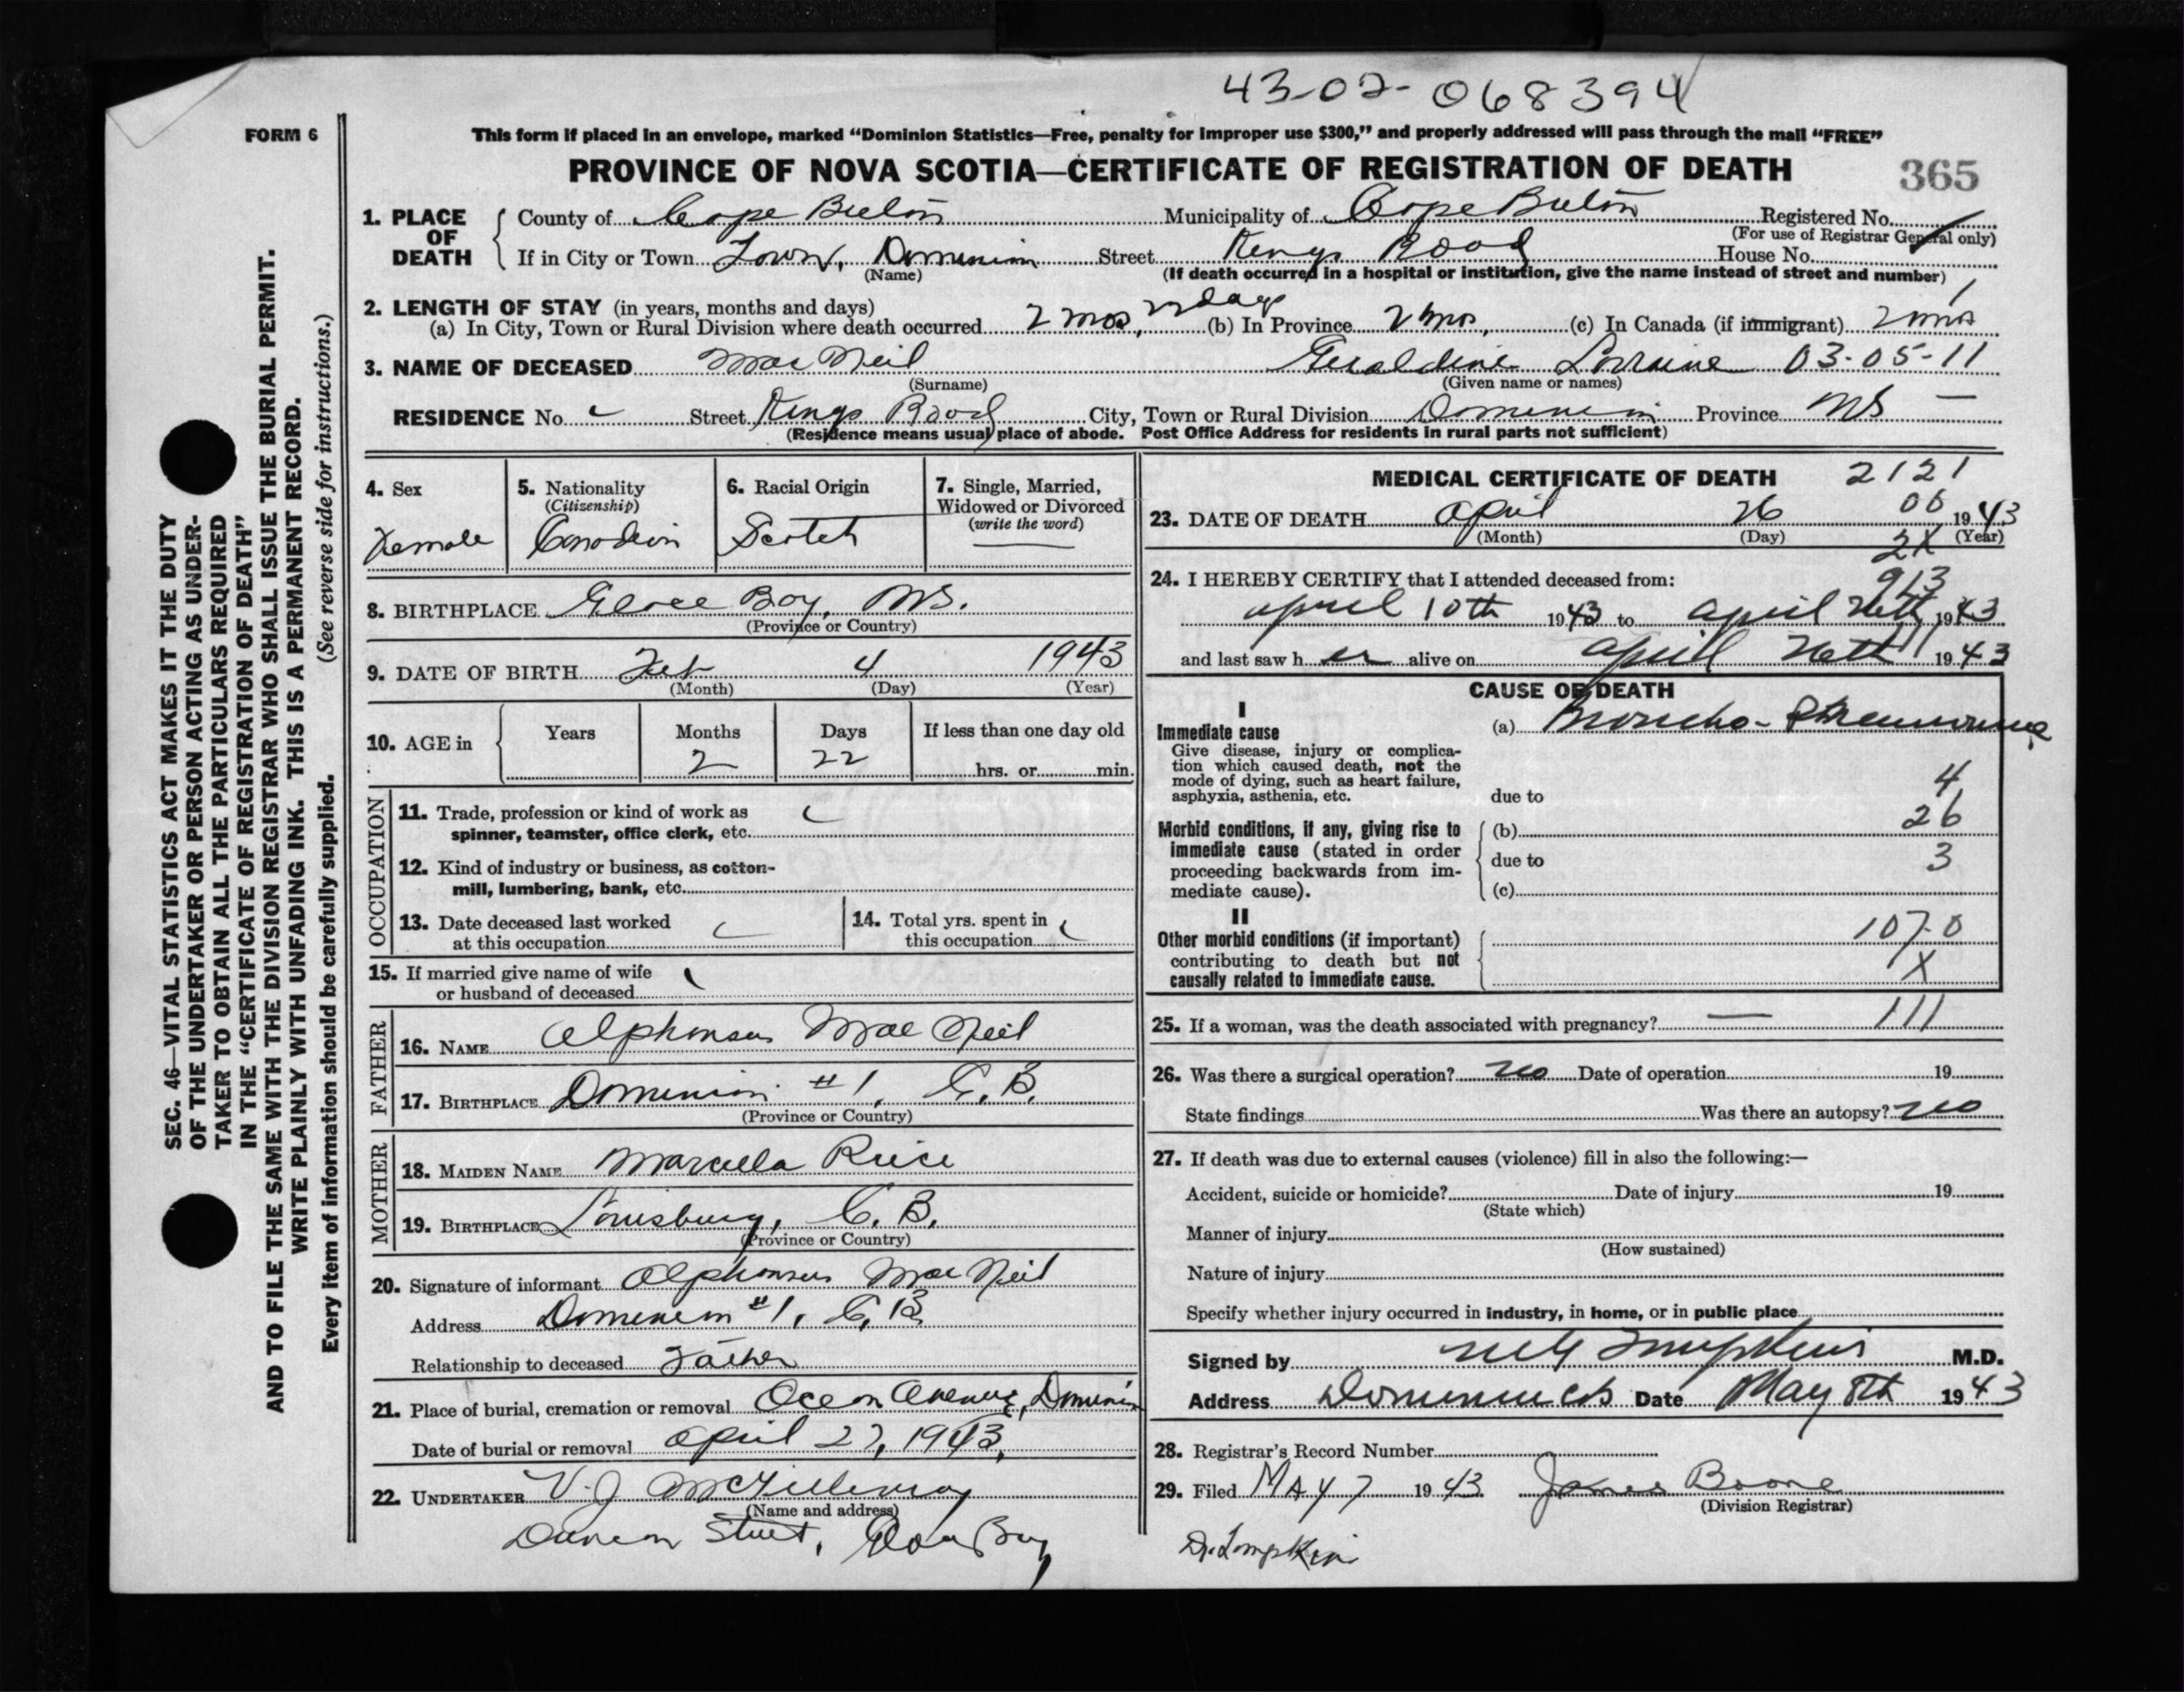 43-02-068394
FORM 6
This form if placed in an envelope, marked “Dominion Statistics—Free, penalty for improper use $300,” and properly addressed will pass through the mail “FREE”
PROVINCE OF NOVA SCOTIA—CERTIFICATE OF REGISTRATION OF DEATH 365
1. PLACE OF DEATH County of Cape Breton Municipality of Cape Breton Registered No.
(For use of Registrar General only)
If in City or Town Town, Dominion Street Kings Road House No.
(Name) (If death occurred in a hospital or institution, give the name instead of street and number)
2. LENGTH OF STAY (in years, months and days)
(a) In City, Town or Rural Division where death occurred 2 mos, 22 days (b) In Province 2 mos, (c) In Canada (if immigrant) 2 mos
3. NAME OF DECEASED Mac Neil Geraldine Lorraine 03-05-11
(Surname) (Given name or names)
RESIDENCE No. Street Kings Road City, Town or Rural Division Dominion Province NS —
(Residence means usual place of abode. Post Office Address for residents in rural parts not sufficient)
4. Sex
Female
5. Nationality
(Citizenship)
Canadian
6. Racial Origin
Scotch
7. Single, Married, Widowed or Divorced
(write the word)
—
8. BIRTHPLACE Glace Bay, NS.
(Province or Country)
9. DATE OF BIRTH Feb 4 1943
(Month) (Day) (Year)
10. AGE in Years Months Days If less than one day old
2 22 hrs. or min.
OCCUPATION
11. Trade, profession or kind of work as
spinner, teamster, office clerk, etc.
12. Kind of industry or business, as cotton-
mill, lumbering, bank, etc.
13. Date deceased last worked
at this occupation
14. Total yrs. spent in
this occupation
15. If married give name of wife
or husband of deceased
FATHER
16. NAME Alphonsus Mac Neil
17. BIRTHPLACE Dominion #1, C.B.
(Province or Country)
MOTHER
18. MAIDEN NAME Marcella Rice
19. BIRTHPLACE Louisburg, C.B.
(Province or Country)
20. Signature of informant Alphonsus Mac Neil
Address Dominion #1, C.B
Relationship to deceased Father
21. Place of burial, cremation or removal Ocean Avenue, Dominion
Date of burial or removal April 27, 1943.
22. UNDERTAKER V.J. McGillivray
(Name and address)
Street, Glace Bay
MEDICAL CERTIFICATE OF DEATH 2121
06
23. DATE OF DEATH April 26 1943
(Month) (Day) (Year)
2X
24. I HEREBY CERTIFY that I attended deceased from:
913
April 10th 1943 to April 26th 1943
and last saw her alive on April 26th 1943
CAUSE OF DEATH
I
Immediate cause
Give disease, injury or complica-
tion which caused death, not the
mode of dying, such as heart failure,
asphyxia, asthenia, etc.
(a) Broncho-Pneumonia
4
due to
26
Morbid conditions, if any, giving rise to
immediate cause (stated in order
proceeding backwards from im-
mediate cause).
(b)
due to
3
(c)
II
Other morbid conditions (if important)
contributing to death but not
causally related to immediate cause.
107-0
X
25. If a woman, was the death associated with pregnancy? — 111
26. Was there a surgical operation? no Date of operation 19
State findings Was there an autopsy? no
27. If death was due to external causes (violence) fill in also the following:—
Accident, suicide or homicide? Date of injury 19
(State which)
Manner of injury
(How sustained)
Nature of injury
Specify whether injury occurred in industry, in home, or in public place
Signed by Tompkins M.D.
Address Dominion CB Date May 8th 1943
28. Registrar's Record Number
29. Filed MAY 7 1943 James Boone
(Division Registrar)
Dr. Tompkin
SEC. 46—VITAL STATISTICS ACT MAKES IT THE DUTY
OF THE UNDERTAKER OR PERSON ACTING AS UNDER-
TAKER TO OBTAIN ALL THE PARTICULARS REQUIRED
IN THE “CERTIFICATE OF REGISTRATION OF DEATH”
AND TO FILE THE SAME WITH THE DIVISION REGISTRAR WHO SHALL ISSUE THE BURIAL PERMIT.
WRITE PLAINLY WITH UNFADING INK. THIS IS A PERMANENT RECORD.
Every item of information should be carefully supplied. (See reverse side for instructions.)